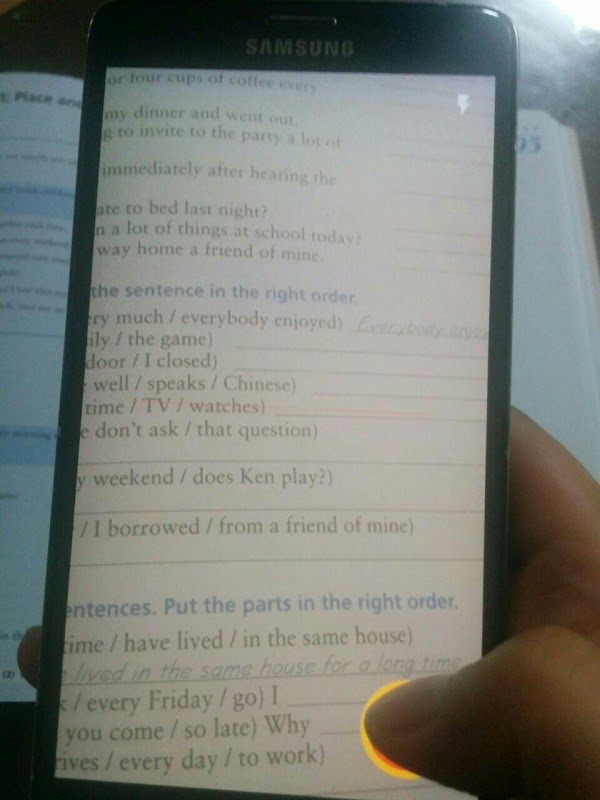 SAMSUNG
or four cups of coffee every
my dinner and went out.
g to invite to the party a lot of
immediately after hearing the
ate to bed last night?
n a lot of things at school today?
way home a friend of mine.
the sentence in the right order.
ry much / everybody enjoyed) Everybody enjoy
ily / the game)
door / I closed)
well / speaks / Chinese)
time / TV / watches)
e don't ask / that question)
y weekend / does Ken play?)
/ I borrowed / from a friend of mine)
entences. Put the parts in the right order.
time / have lived / in the same house)
lived in the same house for a long time
k / every Friday / go) I
you come / so late) Why
rives / every day / to work)